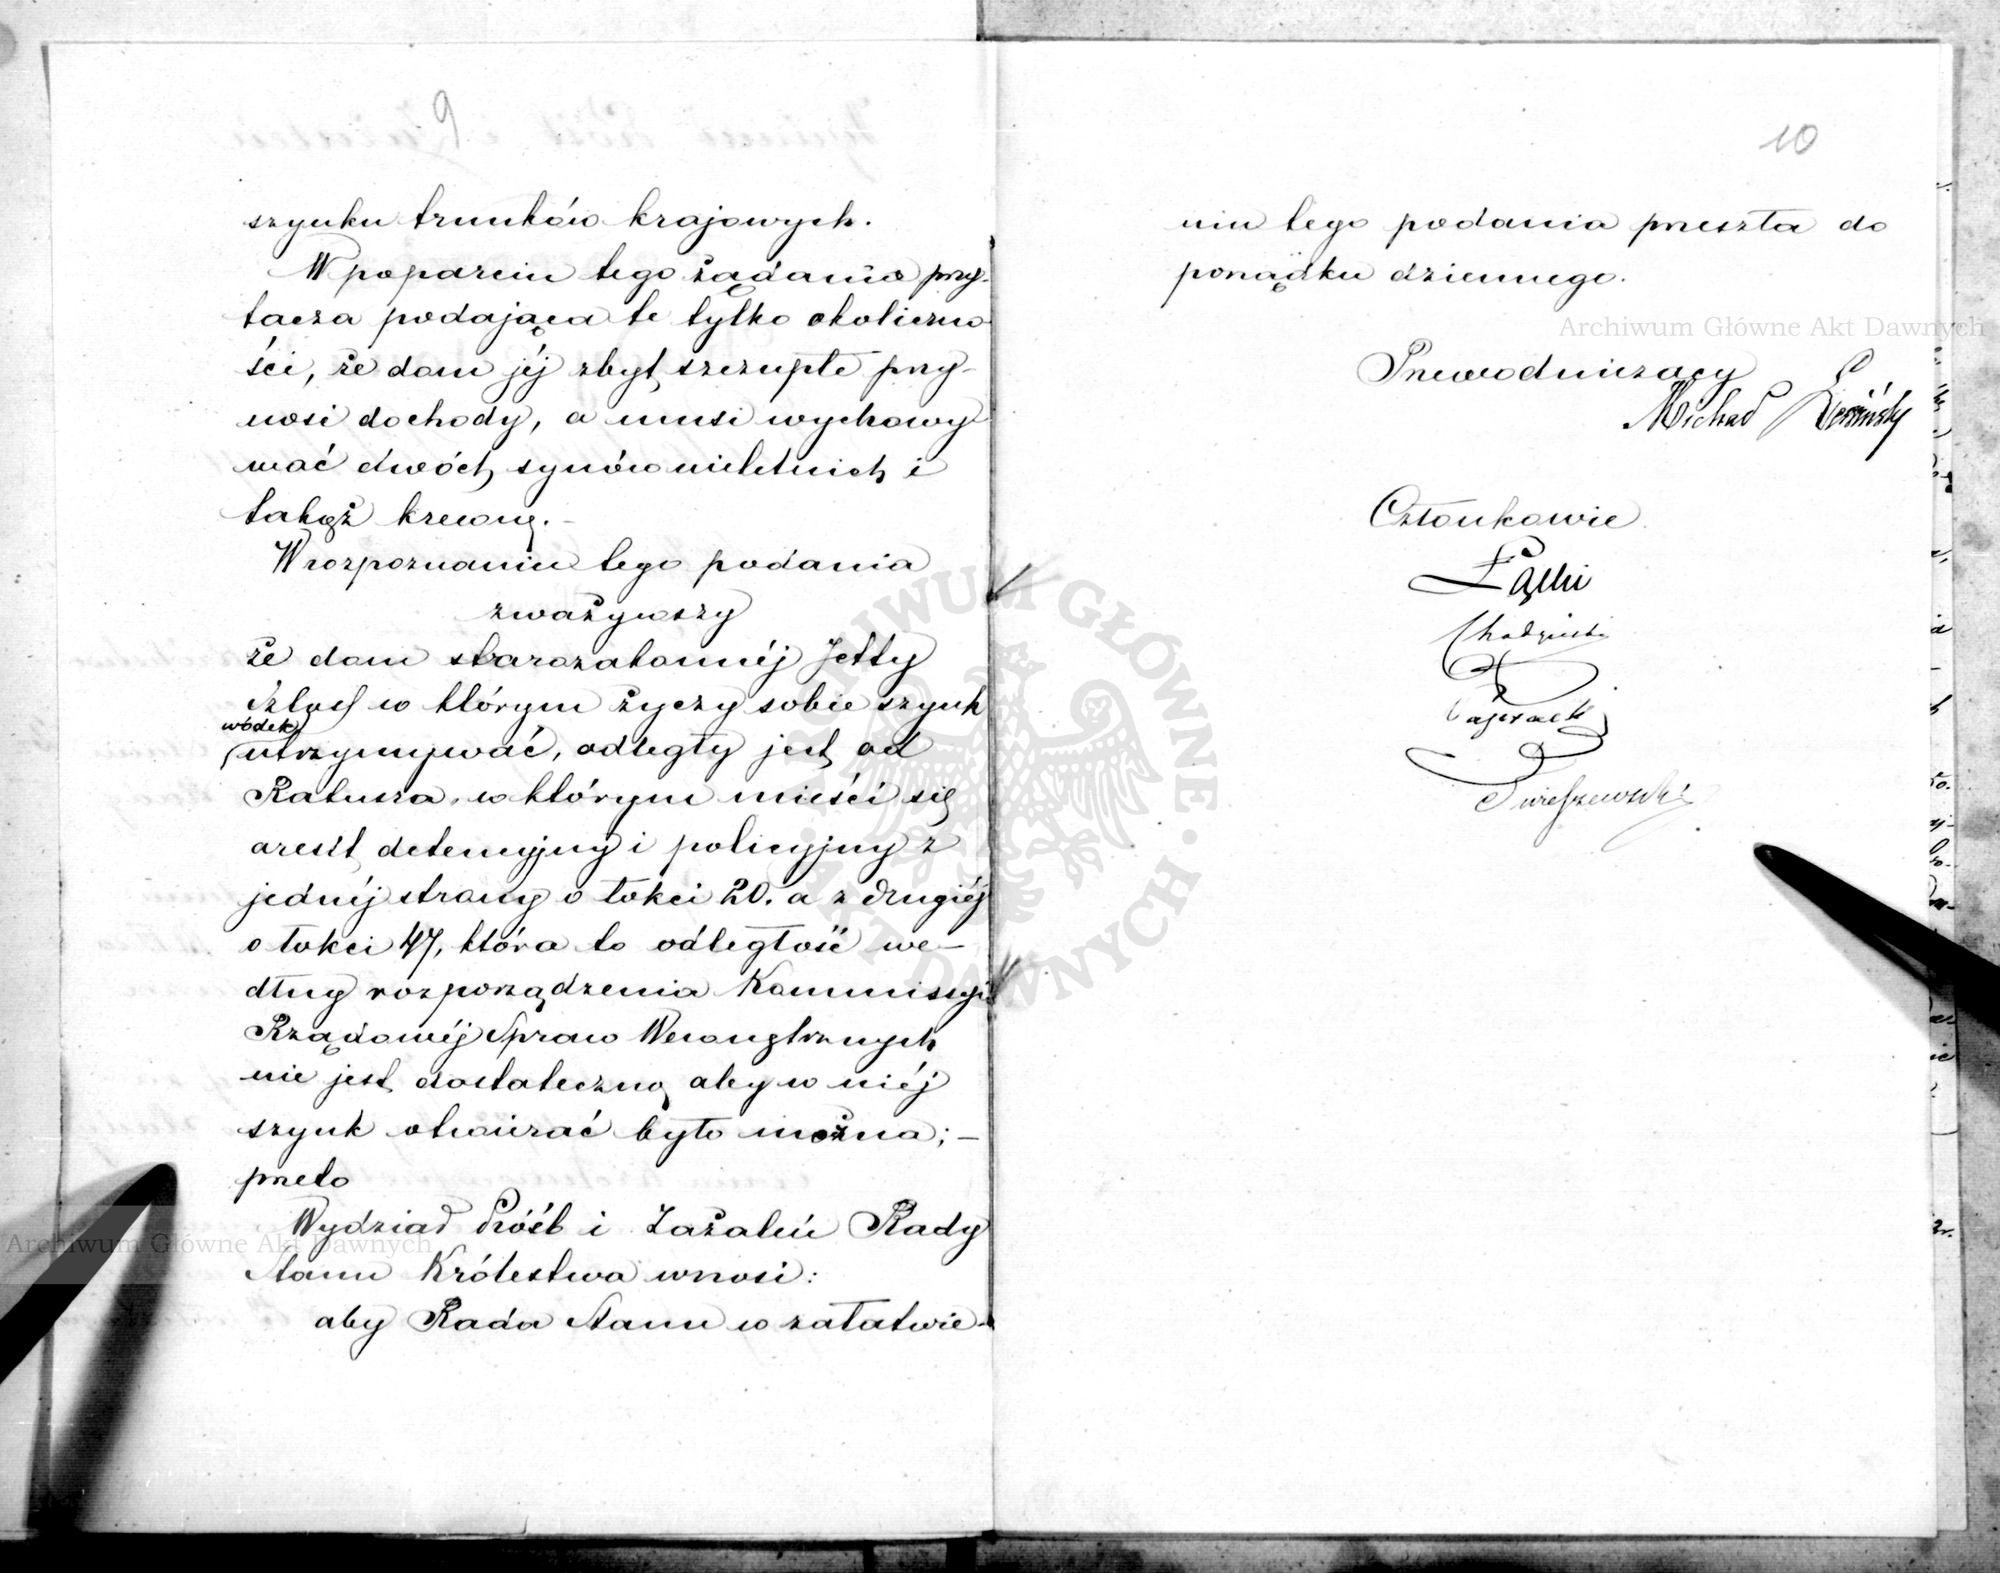 9
szynku trunków krajowych.
W poparciu tego żądania przy-
tacza podająca te tylko okoliczno
ści, że dom jéj zbyt szczupłe przy-
nosi dochody, a musi wychowy
wać dwóch synów nieletnich i
takąż krewną.-
W rozpoznaniu tego podania
zważywszy
że dom starozakonnéj Jetty
w którym życzy sobie szynk
wódek
utrzymywać, odległy jest od
Ratusza, w którym mieści się
areszt detencyjny i policyjny z
jednéj strony o łokci 20. a z drugiéj
o łokci 47, która to odległość we-
dług rozporządzenia Kommissyi
Rządowéj Spraw Wewnętrznych
nie jest dostateczną aby w niéj
szynk otwierać było można; -
przeto
Wydział Próśb i Zażaleń Rady
Stanu Królestwa wnosi:
aby Rada Stanu w załatwie-
10
niu tego podania przeszła do
porządku dziennego.
Przewodniczący
Michał
Członkowie
Łącki
Archiwum Główne Akt Dawnych
Archiwum Główne Akt Dawnych
ARCHIWUM GŁÓWNE · AKT DAWNYCH ·